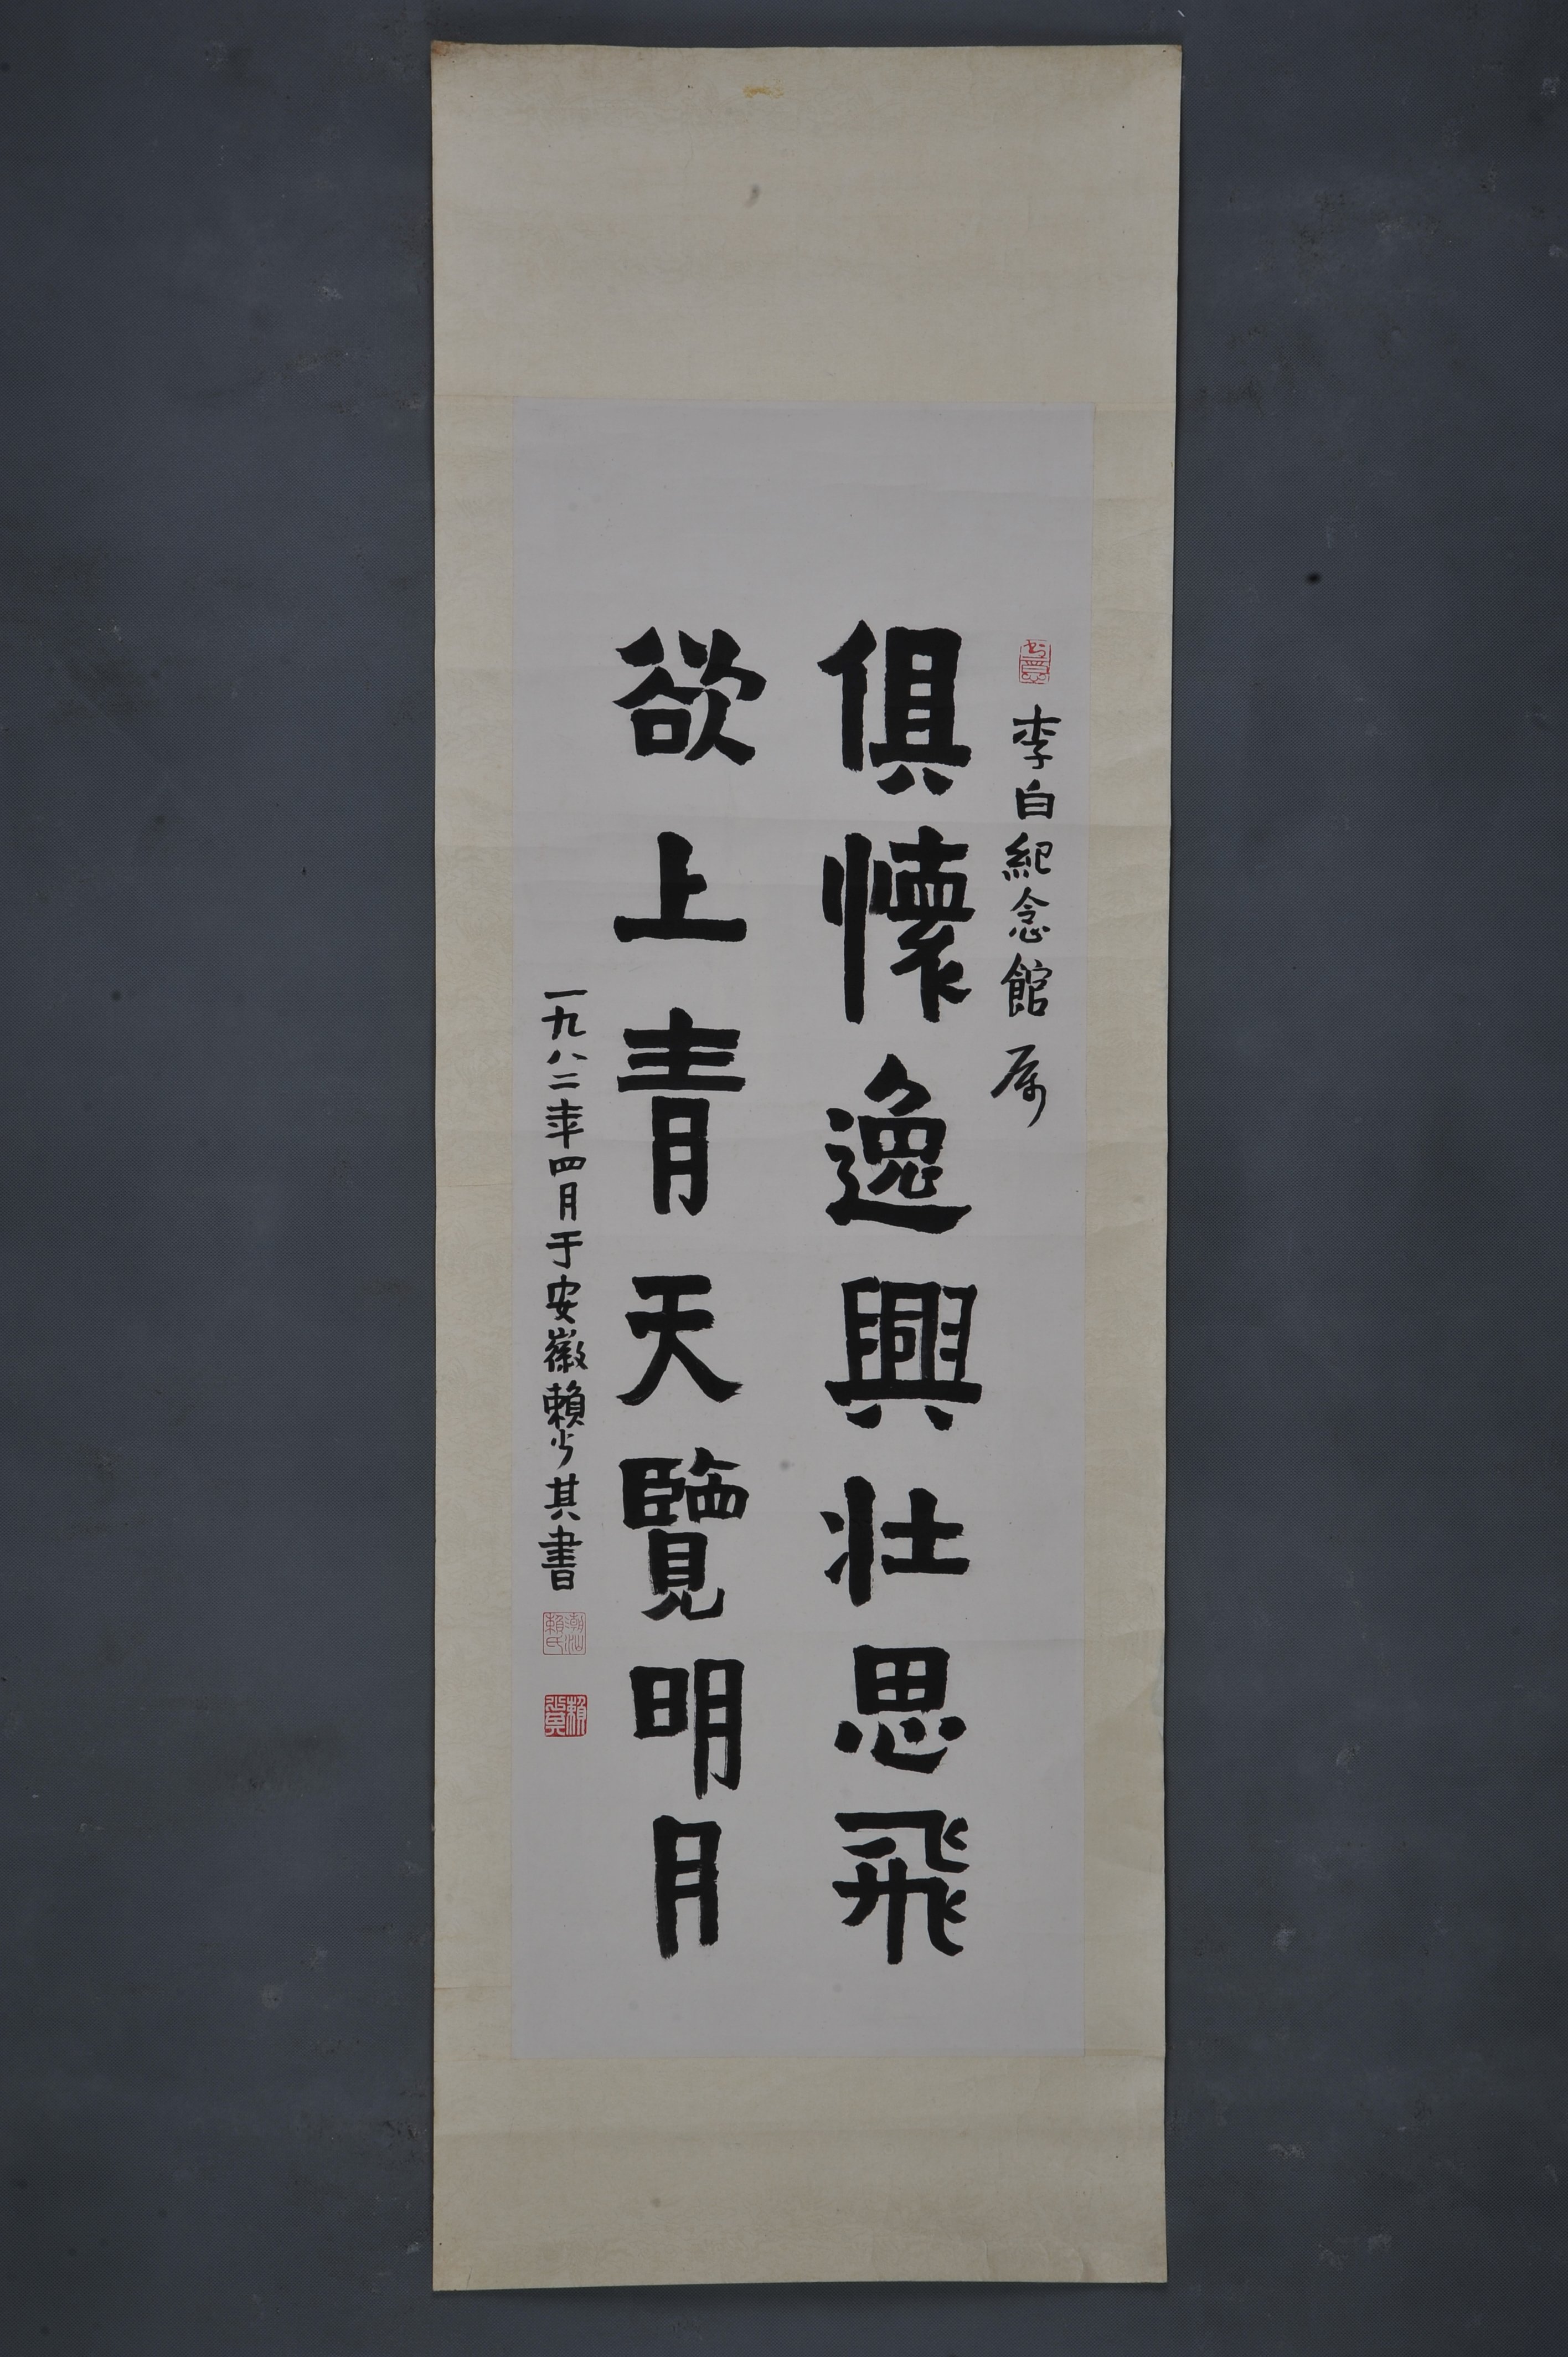 李白紀念館属
俱懷逸興壮思飛
欲上青天覽明月
一九八二年四月于安徽賴少其書
潮汕賴氏
賴少其